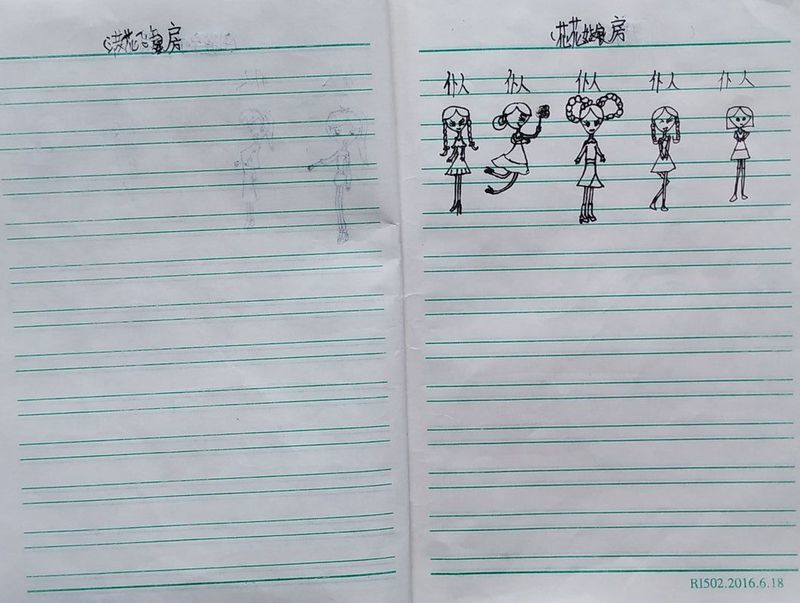 花房
花花房
仆人 仆人 仆人 仆人 仆人
RI502.2016.6.18